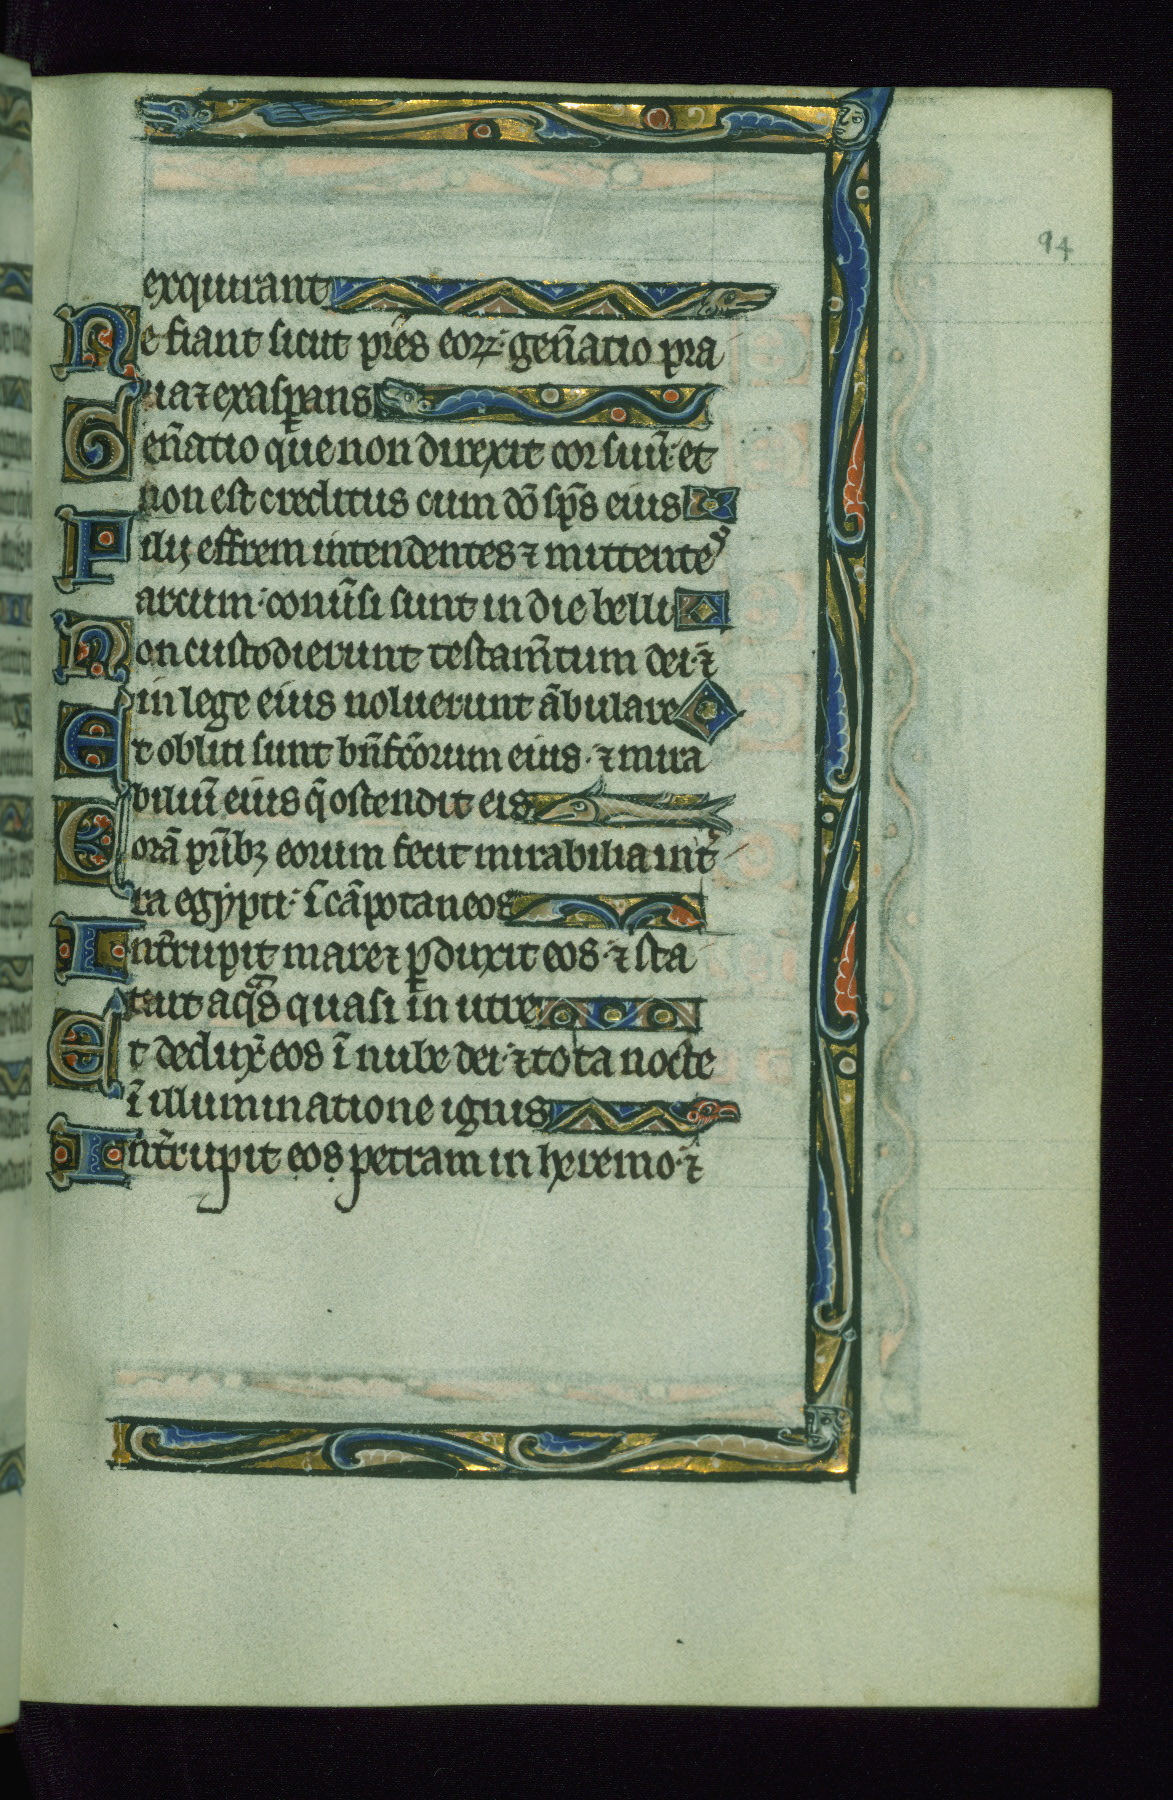 94
exquirant
Ne fiant sicut pr̄es eoꝝ· geñatio pra
ua ⁊ exasꝑans
Geñatio que non direxit cor suū· et
non est creditus cum dō sp̄s eius
Filij effrem intendentes ⁊ mittentes
arcum· conūsi sunt in die belli
Non custodierunt testam̄tum dei· ⁊
in lege eius noluerunt ābulare
Et obliti sunt bn̄fc̄orum eius· ⁊ mira
biliū eius q̄ ostendit eis
Corā pr̄ibꝫ eorum fecit mirabilia in t̄
ra egypti· ī cāpo taneos
Int̄rupit mare ⁊ ꝑduxit eos· ⁊ sta
tuit aq̄s quasi in utre
Et dedux̄ eos ī nube dei· ⁊ tota nocte
ī illuminatione ignis
Int̄rupit eos petram in heremo· ⁊